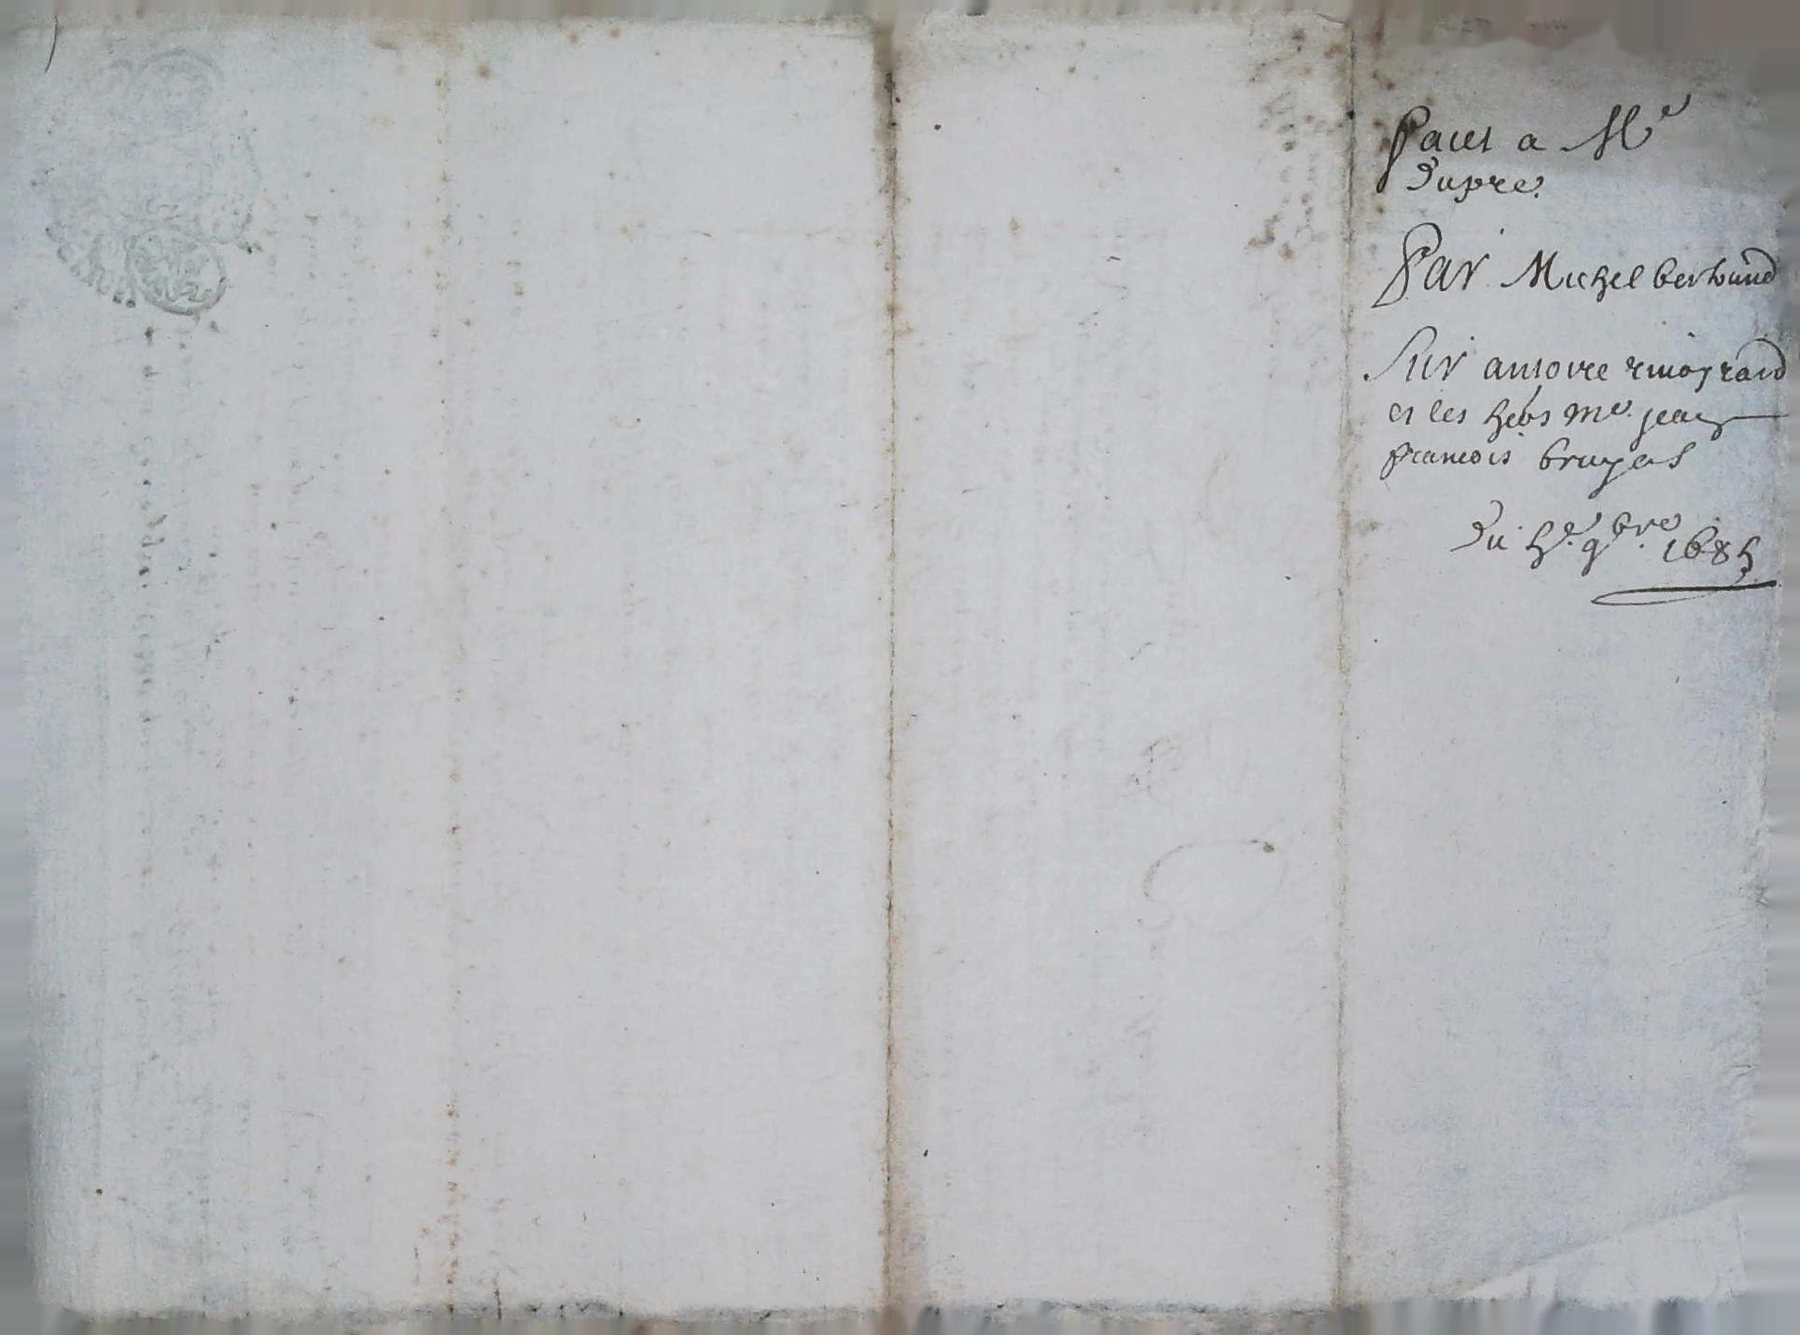 Pact a Me
Dupre
Par Michel bertrand
Sur antoine
et les heirs me jean
francois bruyas
Du 5e 9bre 1685